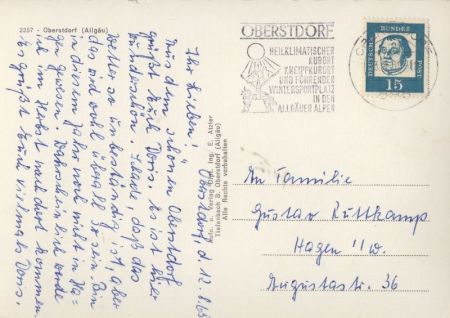 2257 - Oberstdorf (Allgäu)
OBERSTDORF
HEILKLIMATISCHER
KURORT
KNEIPPKURORT
UND FÜHRENDER
WINTERSPORTPLATZ
IN DEN
ALLGÄUER ALPEN
DEUTSCHE
BUNDES
POST
15
Oberstdorf, d 12.8.63
Ihr Lieben!
Aus dem schönen Oberstdorf
grüßt Euch Doris. Es ist hier
wunderschön. Schade, daß das
Wetter so unbeständig ist, aber
das ist wohl überall so. Bin
in diesem Jahr noch nicht in Ha-
gen gewesen. Wahrscheinlich werde
ich im Herbst nach dort kommen.
Es grüßt Euch vielmals Doris.
Aufn. u. Verlag Dipl. Ing. E. Atzler
Tiefenbach B. Oberstdorf (Allgäu)
Alle Rechte vorbehalten
An Familie
Gustav Ruttkamp
Hagen i/W.
Augustastr. 36